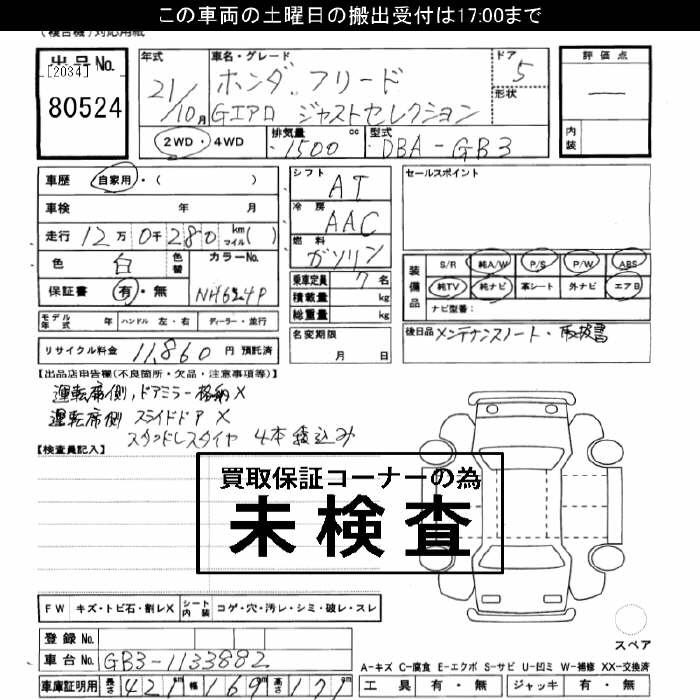 この車両の土曜日の搬出受付は17:00まで
(複合機)対応用紙
出品No.
[2034]
80524
年式
21/10月
車名・グレード
ホンダ フリード
Gエアロ ジャストセレクション
ドア
5
形状
2WD・4WD
排気量
1500 cc
型式
DBA-GB3
評価点
内装
車歴 自家用・( )
車検 年 月
走行 12万0千280 km マイル( )
色 白 色替 カラーNo.
保証書 有・無 NH624P
シフト
AT
冷房
AAC
燃料
ガソリン
乗車定員 7名
積載量 kg
総重量 kg
名変期限
月 日
セールスポイント
装備品
S/R 純A/W P/S P/W ABS
純TV 純ナビ 革シート 外ナビ エアB
ナビ型番:
後日品 メンテナンスノート・取扱書
モデル年式 年 ハンドル 左・右 ディーラー・並行
リサイクル料金 11,860 円 預託済
【出品店申告欄(不良箇所・欠品・注意事項等)】
運転席側、ドアミラー格納X
運転席側 スライドドア X
スタッドレスタイヤ 4本積込み
【検査員記入】
買取保証コーナーの為
未検査
FW キズ・トビ石・割レX シート内装 コゲ・穴・汚レ・シミ・破レ・スレ
スペア
登録No.
車台No. GB3-1133882
A-キズ C-腐食 E-エクボ S-サビ U-凹ミ W-補修 XX-交換済
車庫証明用 長さ 421cm 幅 169cm 高さ 171cm
工具 有・無 ジャッキ 有・無